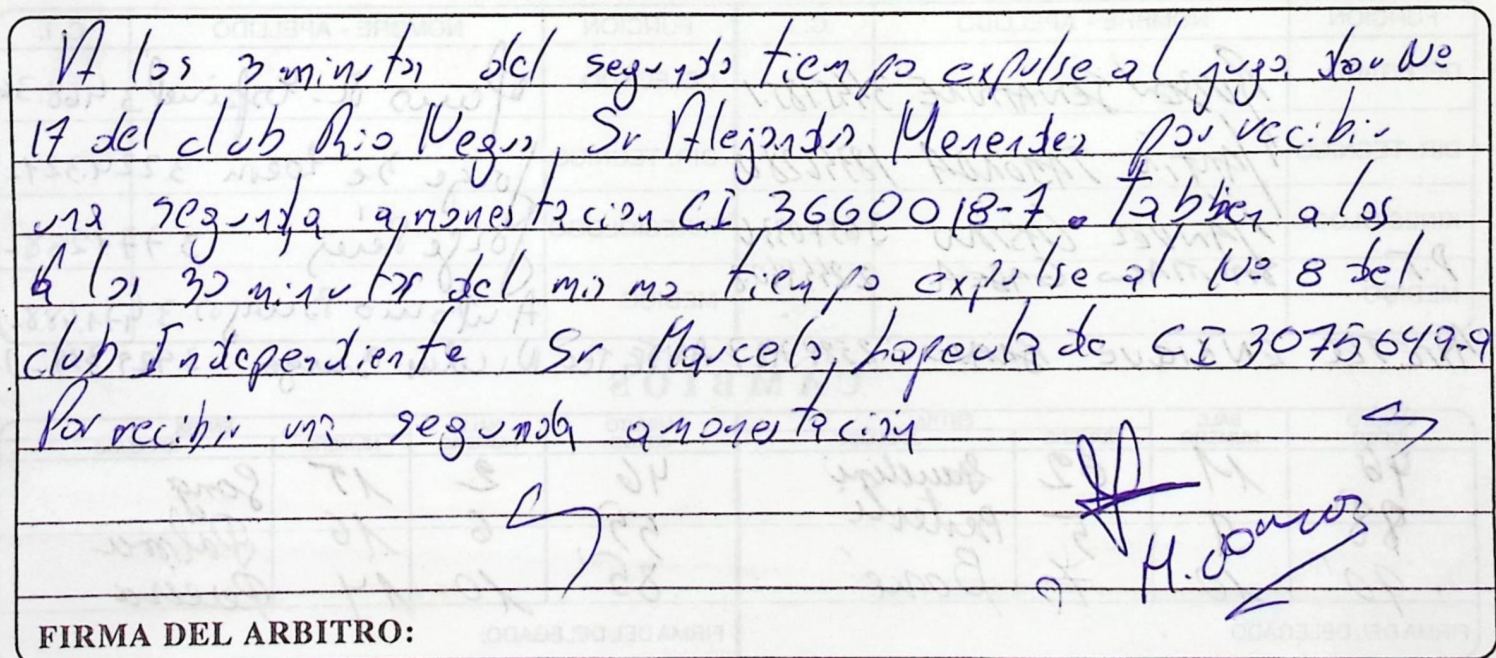 A los 3 minutos del segundo tiempo expulse al jugador Nº
17 del club Rio Negro, Sr Alejandro Menendez por recibir
una segunda amonestacion CI 3660018-7. Tabbien a los
A los 30 minutos del mismo tiempo expulse al Nº 8 del
club Independiente Sr. Marcelo Lapeulade CI 3075649-9
Por recibir una segunda amonestación
FIRMA DEL ARBITRO: